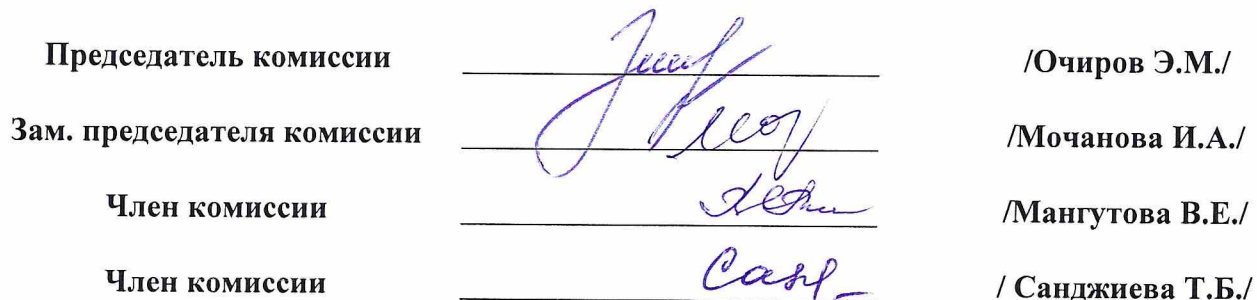 Председатель комиссии /Очиров Э.М./
Зам. председателя комиссии /Мочанова И.А./
Член комиссии /Мангутова В.Е./
Член комиссии / Санджиева Т.Б./